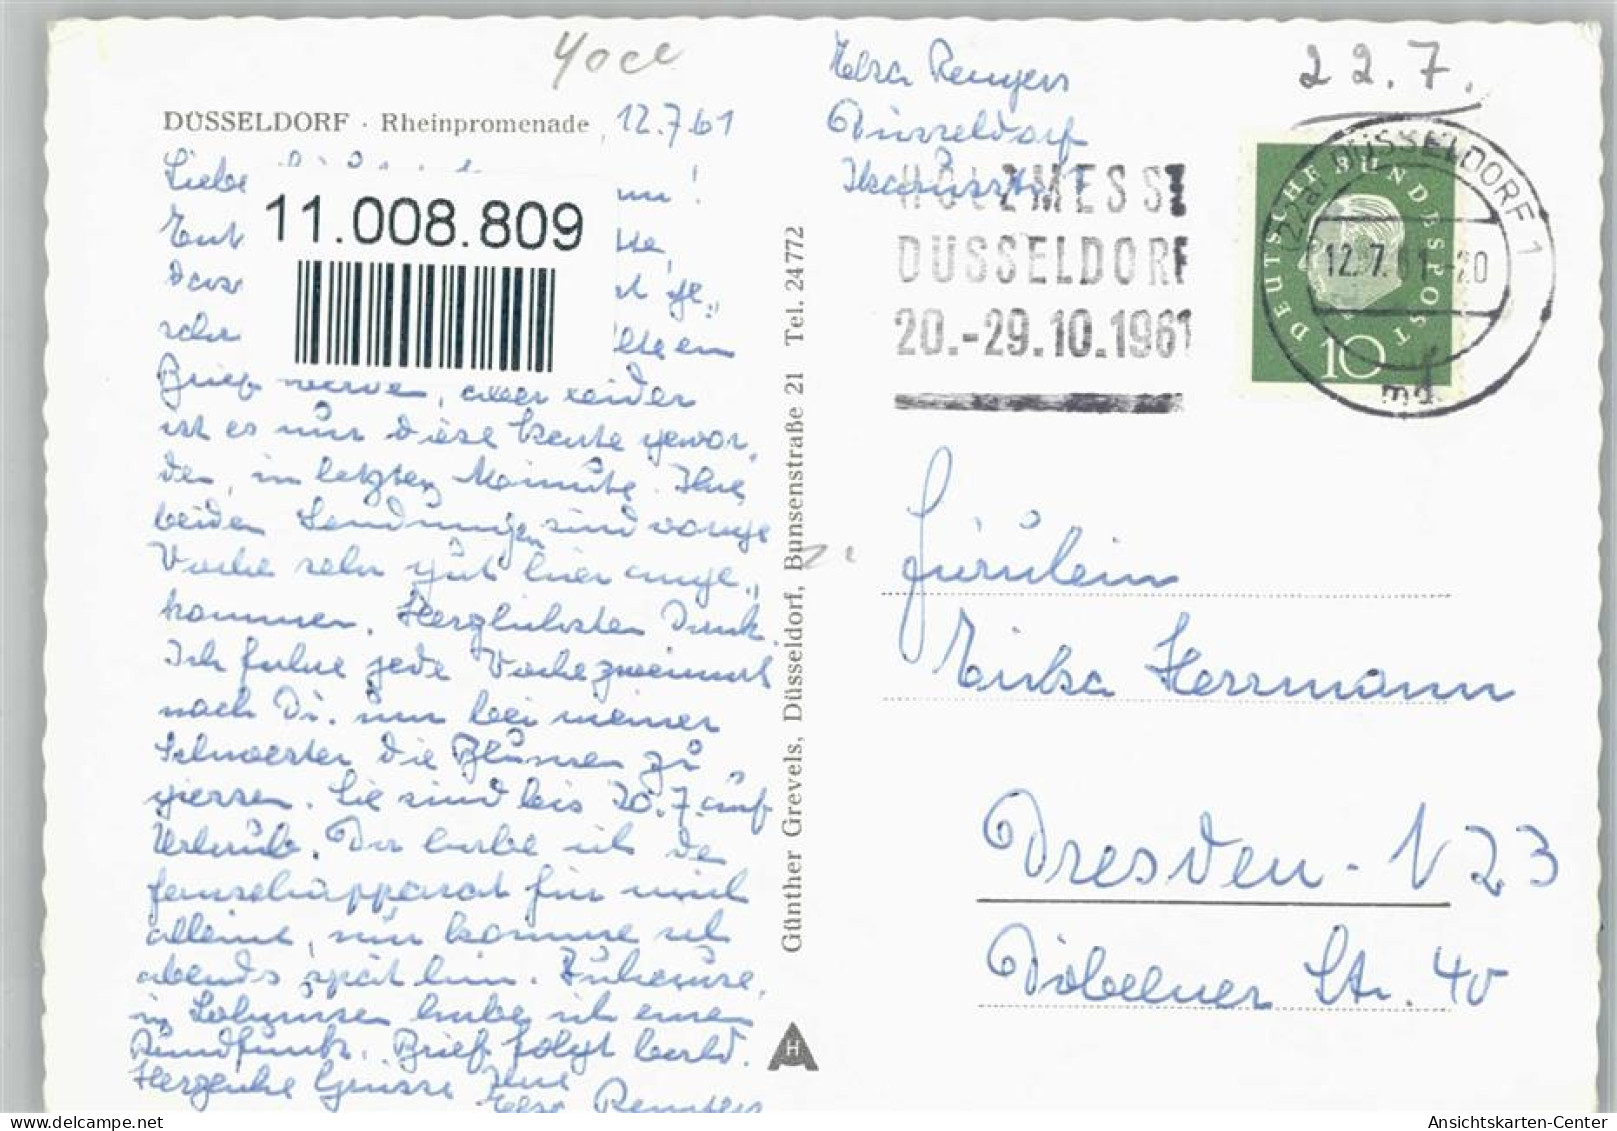 DÜSSELDORF · Rheinpromenade, 12.7.61
Liebe
11.008.809
sehr
Brief werden, aber leider
ist es nur diese Karte gewor-
den, in letzter Minute. Ihre
beiden Sendungen sind vorige
Woche sehr gut hier ange-
kommen. Herzlichsten Dank.
Ich fahre jede Woche zweimal
nach Dü. um bei meiner
Schwester die Blumen zu
giessen. Sie sind bis 20.7. auf
Urlaub. Da habe ich den
Fernsehapparat für mich
alleine, nur komme ich
abends spät hin. Zuhause,
in Lohausen habe ich einen
Rundfunk. Brief folgt bald.
Herzliche Grüsse Ihre
Elsa Rengers
Günther Grevels, Düsseldorf, Bunsenstraße 21 Tel. 24772
H
Elsa Rengers
Düsseldorf
22.7.
HOLZMESSE
DÜSSELDORF
20.-29.10.1961
DEUTSCHE BUNDESPOST
10
(22a) DÜSSELDORF 1
12.7.61.-20
md
Fräulein
Erika Herrmann
Dresden-N 23
Döbelner Str. 40
Ansichtskarten-Center